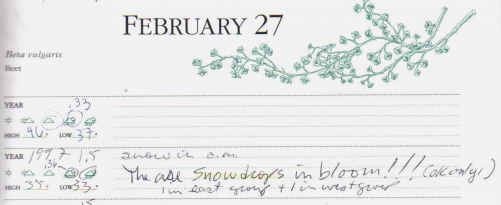 FEBRUARY 27
Beta vulgaris
Beet
YEAR .33
HIGH 46. LOW 37.
YEAR 1997 1.5
snow in a.m.
.34
The are Snowdrops in bloom!!! (only!)
HIGH 35. LOW 33.
1 in east group + 1 in west group